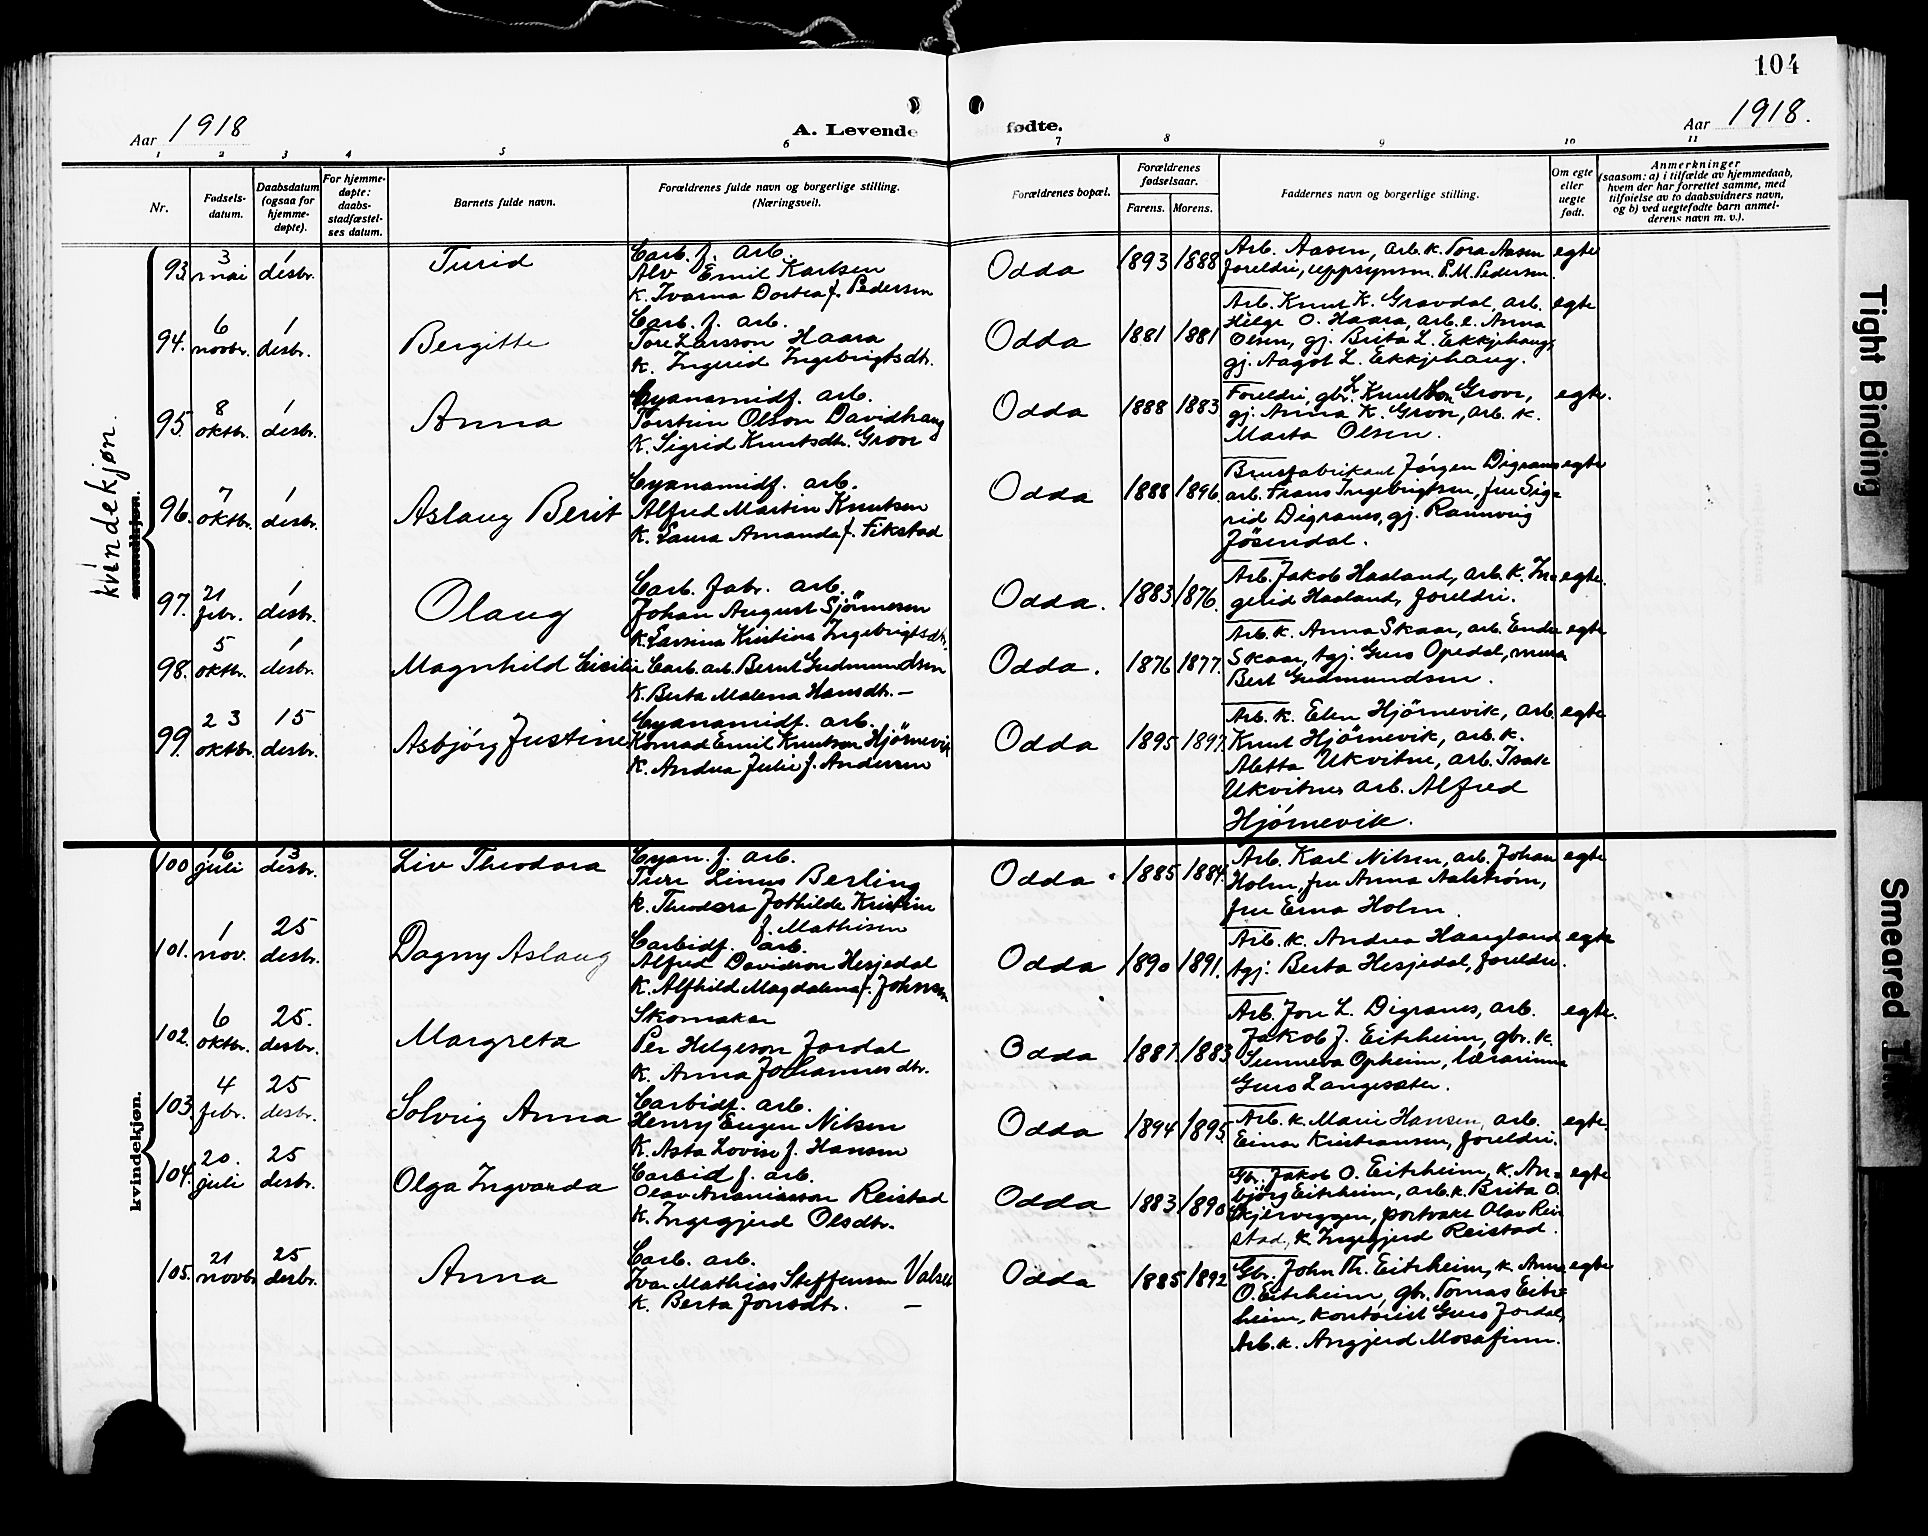 104
Aar 1918
A. Levende fødte.
Aar 1918.
1 2 3 4 5 6 7 8 9 10 11
Nr.
Fødsels-
datum.
Daabsdatum
(ogsaa for
hjemme-
døpte).
For hjemme-
døpte:
daabs-
stadfæstel-
ses datum.
Barnets fulde navn.
Forældrenes fulde navn og borgerlige stilling.
(Næringsvei).
Forældrenes bopæl.
Forældrenes
fødselsaar.
Farens. Morens.
Faddernes navn og borgerlige stilling.
Om egte
eller
uegte
født.
Anmerkninger
(saasom: a) i tilfælde av hjemmedaab,
hvem der har forrettet samme, med
tilføielse av to daabsvidners navn,
og b) ved uegtefødte barn anmel-
derens navn m. v.).
kvindekjøn.
mandkjøn.
93 3 mai 1 desbr. Turid
Carb. f. arb.
Alv Emil Karlsen
K. Ivarna Dortea f. Pedersen
Odda 1893 1888
Arb. Aasen, arb. k. Tora Aasen
foreldri, uppsynsm. P.M. Pedersen.
egte
94. 6 novbr. 1 desbr. Bergitte
Carb. f. arb.
Tore Larsson Haara
K. Ingerid Ingebrigtsdtr.
Odda 1881 1881
Arb. Knut K. Gravdal, arb.
Helge O. Haara, arb. e. Anna
Olsen, gj. Brita L. Ekkjehaug,
gj. Aagot L. Ekkjehaug.
egte
95. 8 oktbr. 1 desbr. Anna
Cyanamidf. arb.
Torstein Olson Davidhaug
K. Sigrid Knutsdtr. Grovr
Odda 1888 1883
Foreldri, gbr. Knut Grovr,
gj. Anna K. Grovr, arb. k.
Marta Olsen.
egte.
96. 7 oktbr. 1 desbr. Aslaug Berit
Cyanamidf. arb.
Alfred Martin Knutsen
K. Laura Amanda f. Fikstad
Odda 1888 1896.
Brusfabrikant Jörgen Digranes
arb. Frans Ingebrigtsen, fru Sig-
rid Digranes, gj. Rannveig
Jösendal.
egte
97. 21 febr. 1 desbr. Olaug
Carb. fabr. arb.
Johan August Sjönnesen
K. Larsina Kristina Ingebrigtsdtr.
Odda. 1883 1876.
Arb. Jakob Haaland, arb. k. In-
gerid Haaland, foreldri.
egte.
98. 5 oktbr. 1 desbr. Magnhild Cicilie
Carb. arb. Bernt Gudmundsen
K. Berta Malena Hansdtr. —
Odda. 1876 1877.
Arb. k. Anna Skaar, arb. Endre
Skaar, tgj. Guro Opedal,
Bert Gudmundsen.
egte
99. 23 oktbr. 15 desbr. Asbjörg Justine
Cyanamidf. arb.
Konrad Emil Knutson Hjörnevik
K. Andrea Julie f. Andersen
Odda 1895 1897.
Arb. k. Elen Hjörnevik, arb.
Knut Hjörnevik, arb. k.
Aletta Ukvitne, arb. Isak
Ukvitnes arb. Alfred
Hjörnevik.
egte
kvindekjøn.
100 16 juli 13 desbr. Liv Theodora
Cyan. f. arb.
Ture Linus Berling
K. Theodora Jothilde Kristine
f. Mathisen
Odda. 1885 1884.
Arb. Karl Nilsen, arb. Johan
Holm, fru Anna Aalström,
fru Erna Holm.
egte
101. 1 nov. 25 desbr. Dagny Aslaug
Carbidf. arb.
Alfred Davidson Hesjedal
K. Alfhild Magdalena f. Johnsen
Odda 1890 1891.
Arb. k. Andrea Haargland
tgj. Berta Hesjedal, foreldri.
egte
102. 6 oktbr. 25. desbr. Margreta
Skomakar
Per Helgeson Jordal
K. Anna Johannesdtr.
Odda 1887 1883
Arb. Jon L. Digranes, arb.
Jakob J. Eitrheim, gbr. k.
Sunneva Opheim, lærarinne
Guro Langesæter.
egte.
103. 4 febr. 25 desbr. Solveig Anna
Carbidf. arb.
Henry Eugen Nilsen
K. Asta Lovise f. Hansen
Odda 1894 1895
Arb. k. Marie Hansen, arb.
Einar Kristiansen, foreldri.
egte.
104. 20. juli 25 desbr. Olga Ingvarda
Carbid f. arb.
Olav Ananiasson Reistad
K. Ingegjerd Olsdtr.
Odda 1883 1890
Gbr. Jakob O. Eitrheim, k. An-
björg Eitrheim, arb. k. Brita O.
Skjerveggen, portvakt Olav Rei-
stad, k. Ingegjerd Reistad.
egte
105. 21 novbr. 25 desbr. Anna
Carb. arb.
Ivar Mathias Steffenson
K. Berta Jonsdtr. —
Odda 1885 1892
Gbr. John Th. Eitrheim, k. Anna
O. Eitrheim, gbr. Tomas Eitr-
heim, kontorist Guro Jordal,
Arb. k. Angjerd Mosafinn.
egte
Tight Binding
Smeared